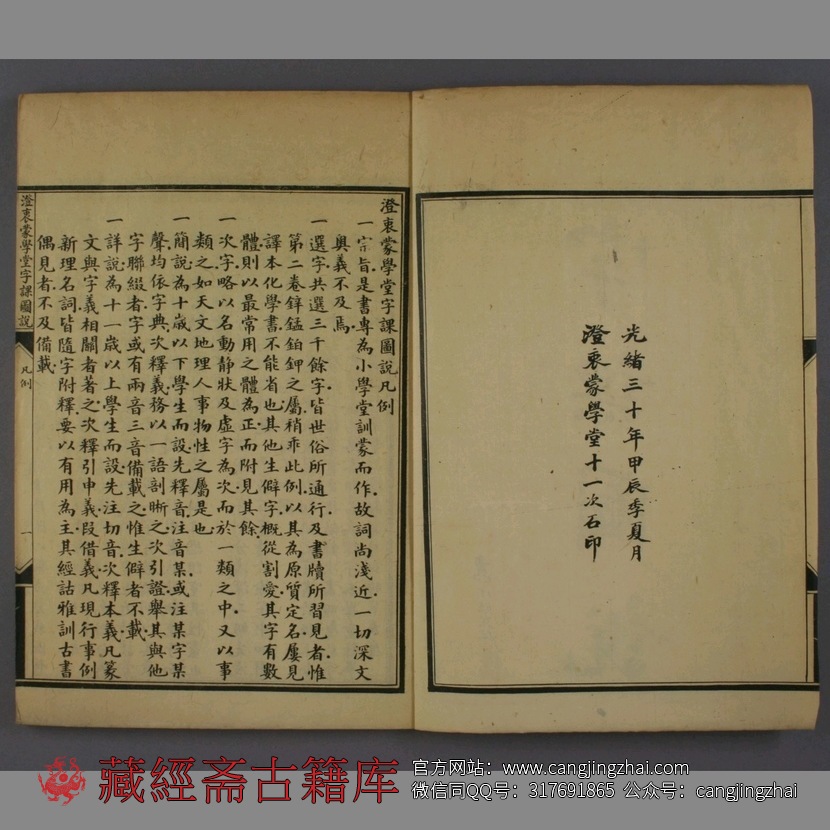 光緒三十年甲辰季夏月
澄衷蒙學堂十一次石印
澄衷蒙學堂字課圖說凡例
一宗旨是書專為小學堂訓蒙而作故詞尚淺近一切深文
奧義不及焉
一選字共選三千餘字皆世俗所通行及書牘所習見者惟
第二卷鋅錳鉑鉀之屬稍乖此例以其為原質定名屢見
譯本化學書不能省也其他生僻字概從割愛其字有數
體則以最常用之體為正而附見其餘
一次字略以名動靜狀及虛字為次而於一類之中又以事
類之如天文地理人事物性之屬是也
一簡說為十歲以下學生而設先釋音注音某或注某字某
聲均依字典次釋義務以一語剖晰之次引證舉其與他
字聯綴者字或有兩音三音備載之惟生僻者不載
一詳說為十一歲以上學生而設先注切音次釋本義凡篆
文與字義相關者著之次釋引申義叚借義凡現行事例
新理名詞皆隨字附釋要以有用為主其經詁雅訓古書
偶見者不及備載
澄衷蒙學堂字課圖說
凡例
一
藏經斋古籍库
官方网站：www.cangjingzhai.com
微信同QQ号：317691865 公众号：cangjingzhai